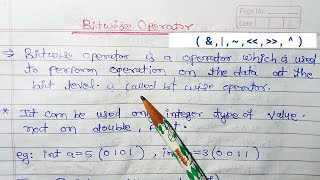 Page No.
Date
Bitwise Operator
( &, |, ~, <<, >>, ^ )
→ Bitwise operator is a operator which is used
to perform operation on the data at the
bit level is called bit wise operator.
* It can be used only integer type of value
not on double, float.
eg: int a=5 (0101), int =3(0011)